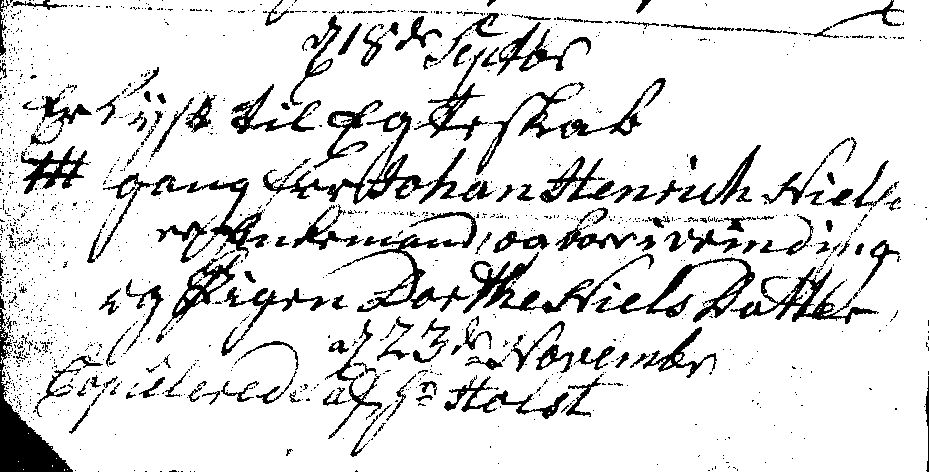 d 18de Septbr
Er Lyst til Egteskab
III gang for Johan Henrich Niels
Enkemand, og boer i vinding
og Pigen Dorthe Niels Datter
d 23de Novembr
Copulerede af Hr Holst